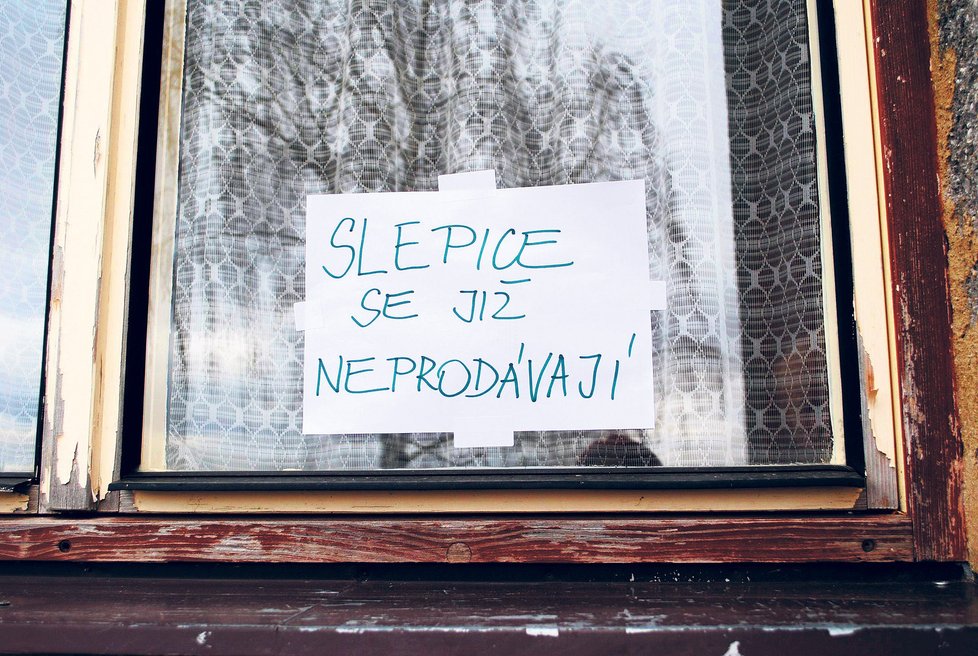 SLEPICE
SE JIŽ
NEPRODÁVAJÍ